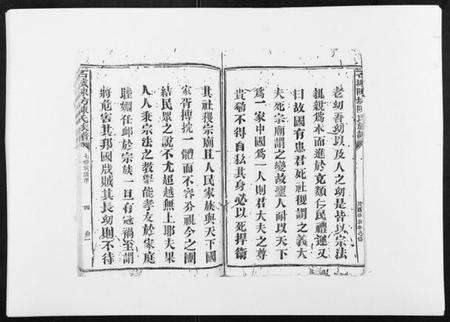 老幼吾幼以及人之幼是皆以宗法
親親為本而進於克類仁民禮運又
曰故國有患君死社稷謂之義大
夫死宗廟謂之變故聖人耐以天下
為一家中國為一人則君大夫之尊
貴尋不得自私其身必以死捍衛
其社稷宗廟且人民家族與天下國
家胥搏挽一體而不容分視今之團
結民眾之說不尤超越無上耶夫果
人人秉宗法之教皆能孝友於家庭
睦婣任卹於宗族一旦有寇禍至謂
將危害其邦國戕賊其長幼則不待